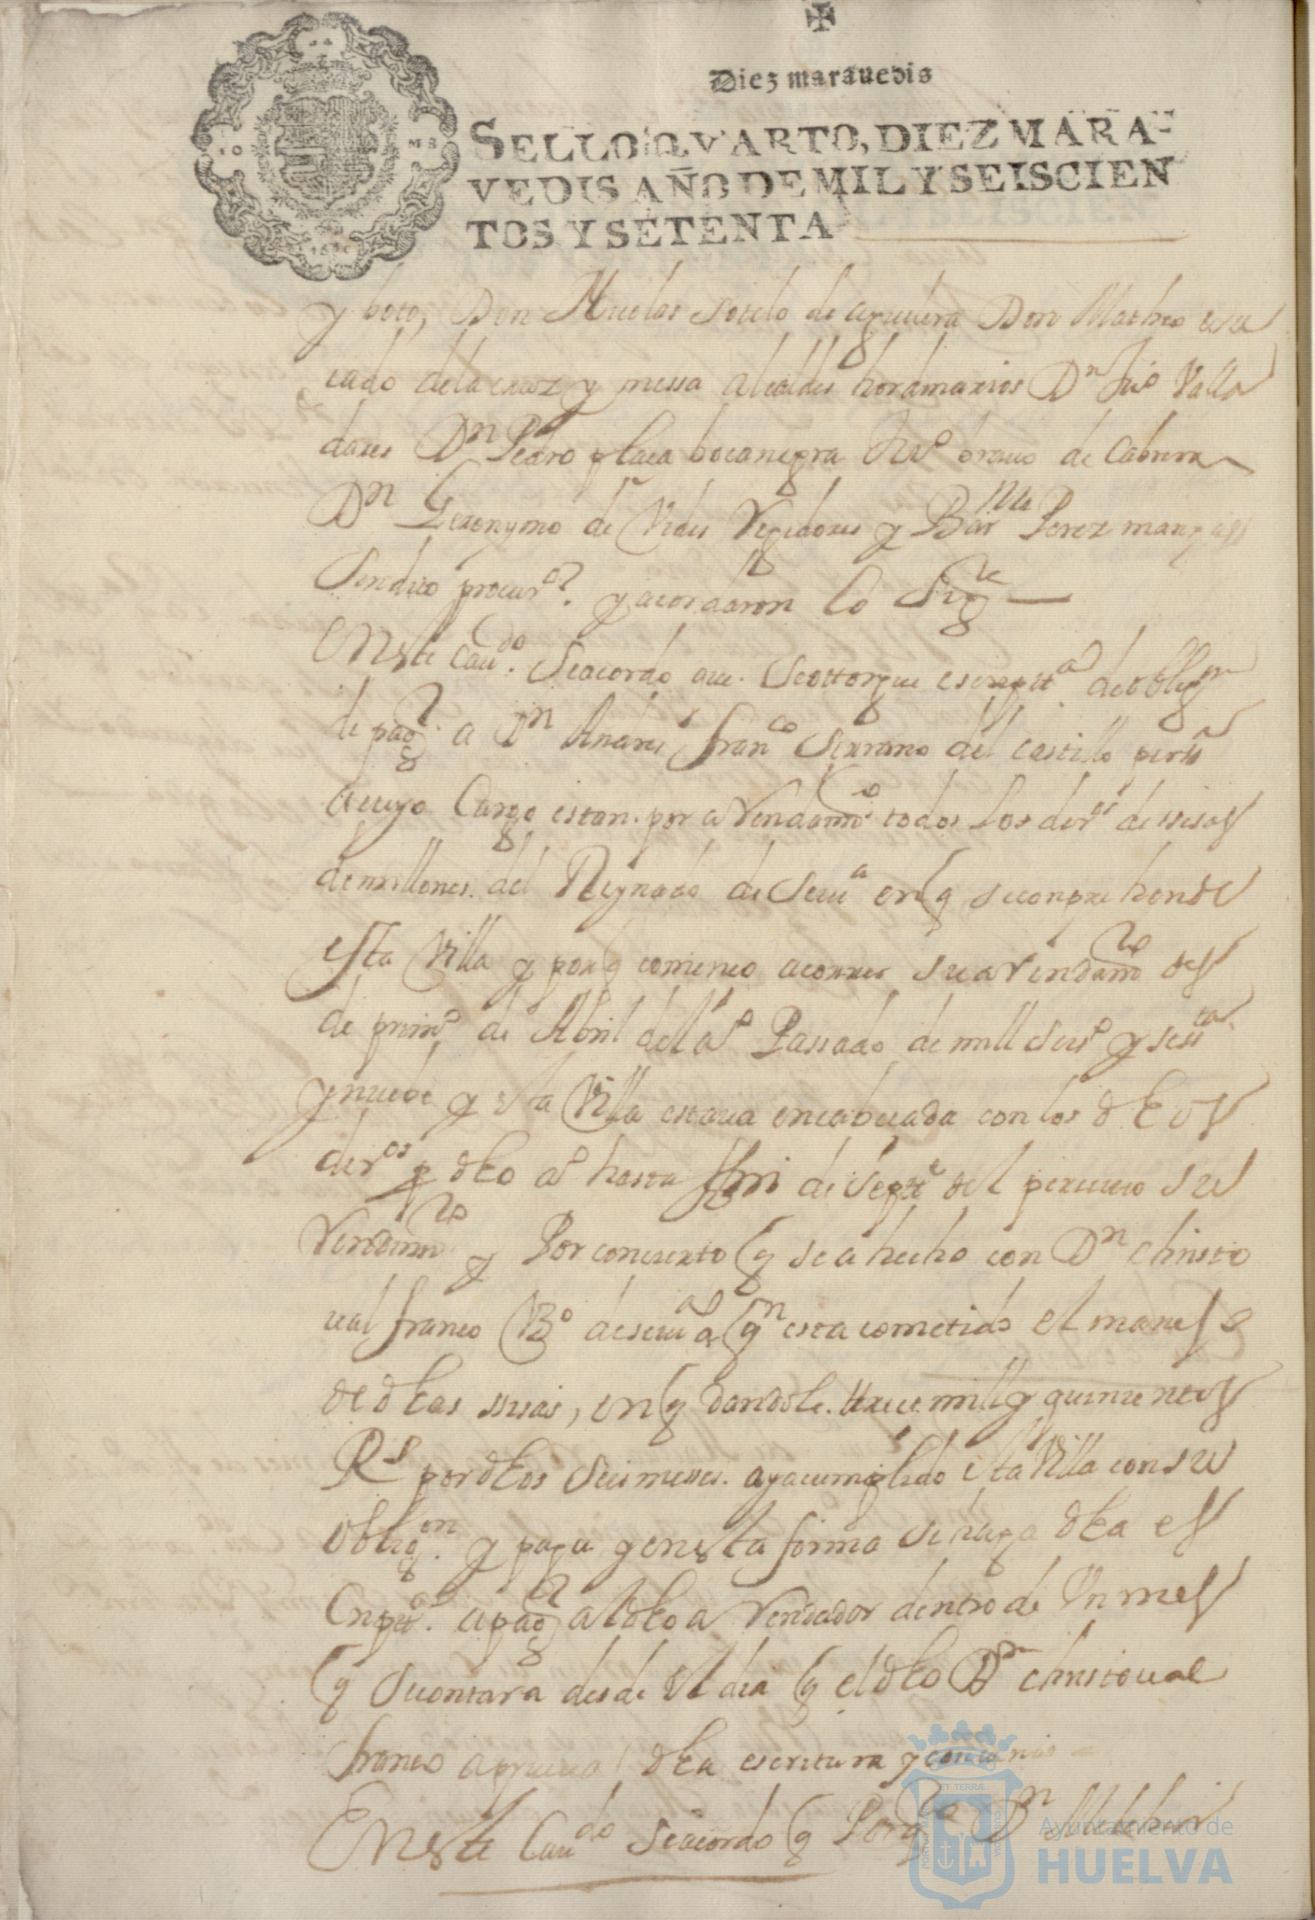 ✠
Diez marauedis
SELLO QVARTO, DIEZ MARA-
VEDIS AÑO DE MIL Y SEISCIEN
TOS Y SETENTA
y boto, Don Nicolas Sotelo de aguilera Don Matheo
cado dela cruz y messa alcaldes hordinarios Dn Juo Valla
dares Dn Pedro plaza bocanegra brauo de Cabrera
Dn Geronymo de Vides Regidores y Barme Perez
Sendico procuror. y acordaron lo Sigte
En este Caudo. Se acordo que. Se ottorgue escriptta de obligon
de pago. a Dn Andres franco Serrano del castillo persa
a cuyo Cargo estan. por aRendamto todos Los deros de sisas
de millones. del Reynado de Seua en q se conprehende
esta Villa y por q comenco a correr su aRendamto des
de primo de Abril del ao Passado de mill seiso y sesta
y nuebe y esta Villa estaua encabecada con los dhos
deros dho ao hasta fin de Septe del
Rendimto y Por concierto q se a hecho con Dn christo
ual franco Vo de seua a qn esta cometido el manejo
de dhas sisas, en q dandole. trece mill y quinientos
Rs por dhos seis messes. aya cumplido esta Villa con su
obligon. y paga y en esta forma se haga dha es
Cripta. a pagar al dho aRendador dentro de Un mes
q Se contara desde el dia q el dho Dn christoual
franco aprueue dha escritura y
En este Caudo Se acordo q Porqto Dn Melchor
Ayuntamiento de
HUELVA